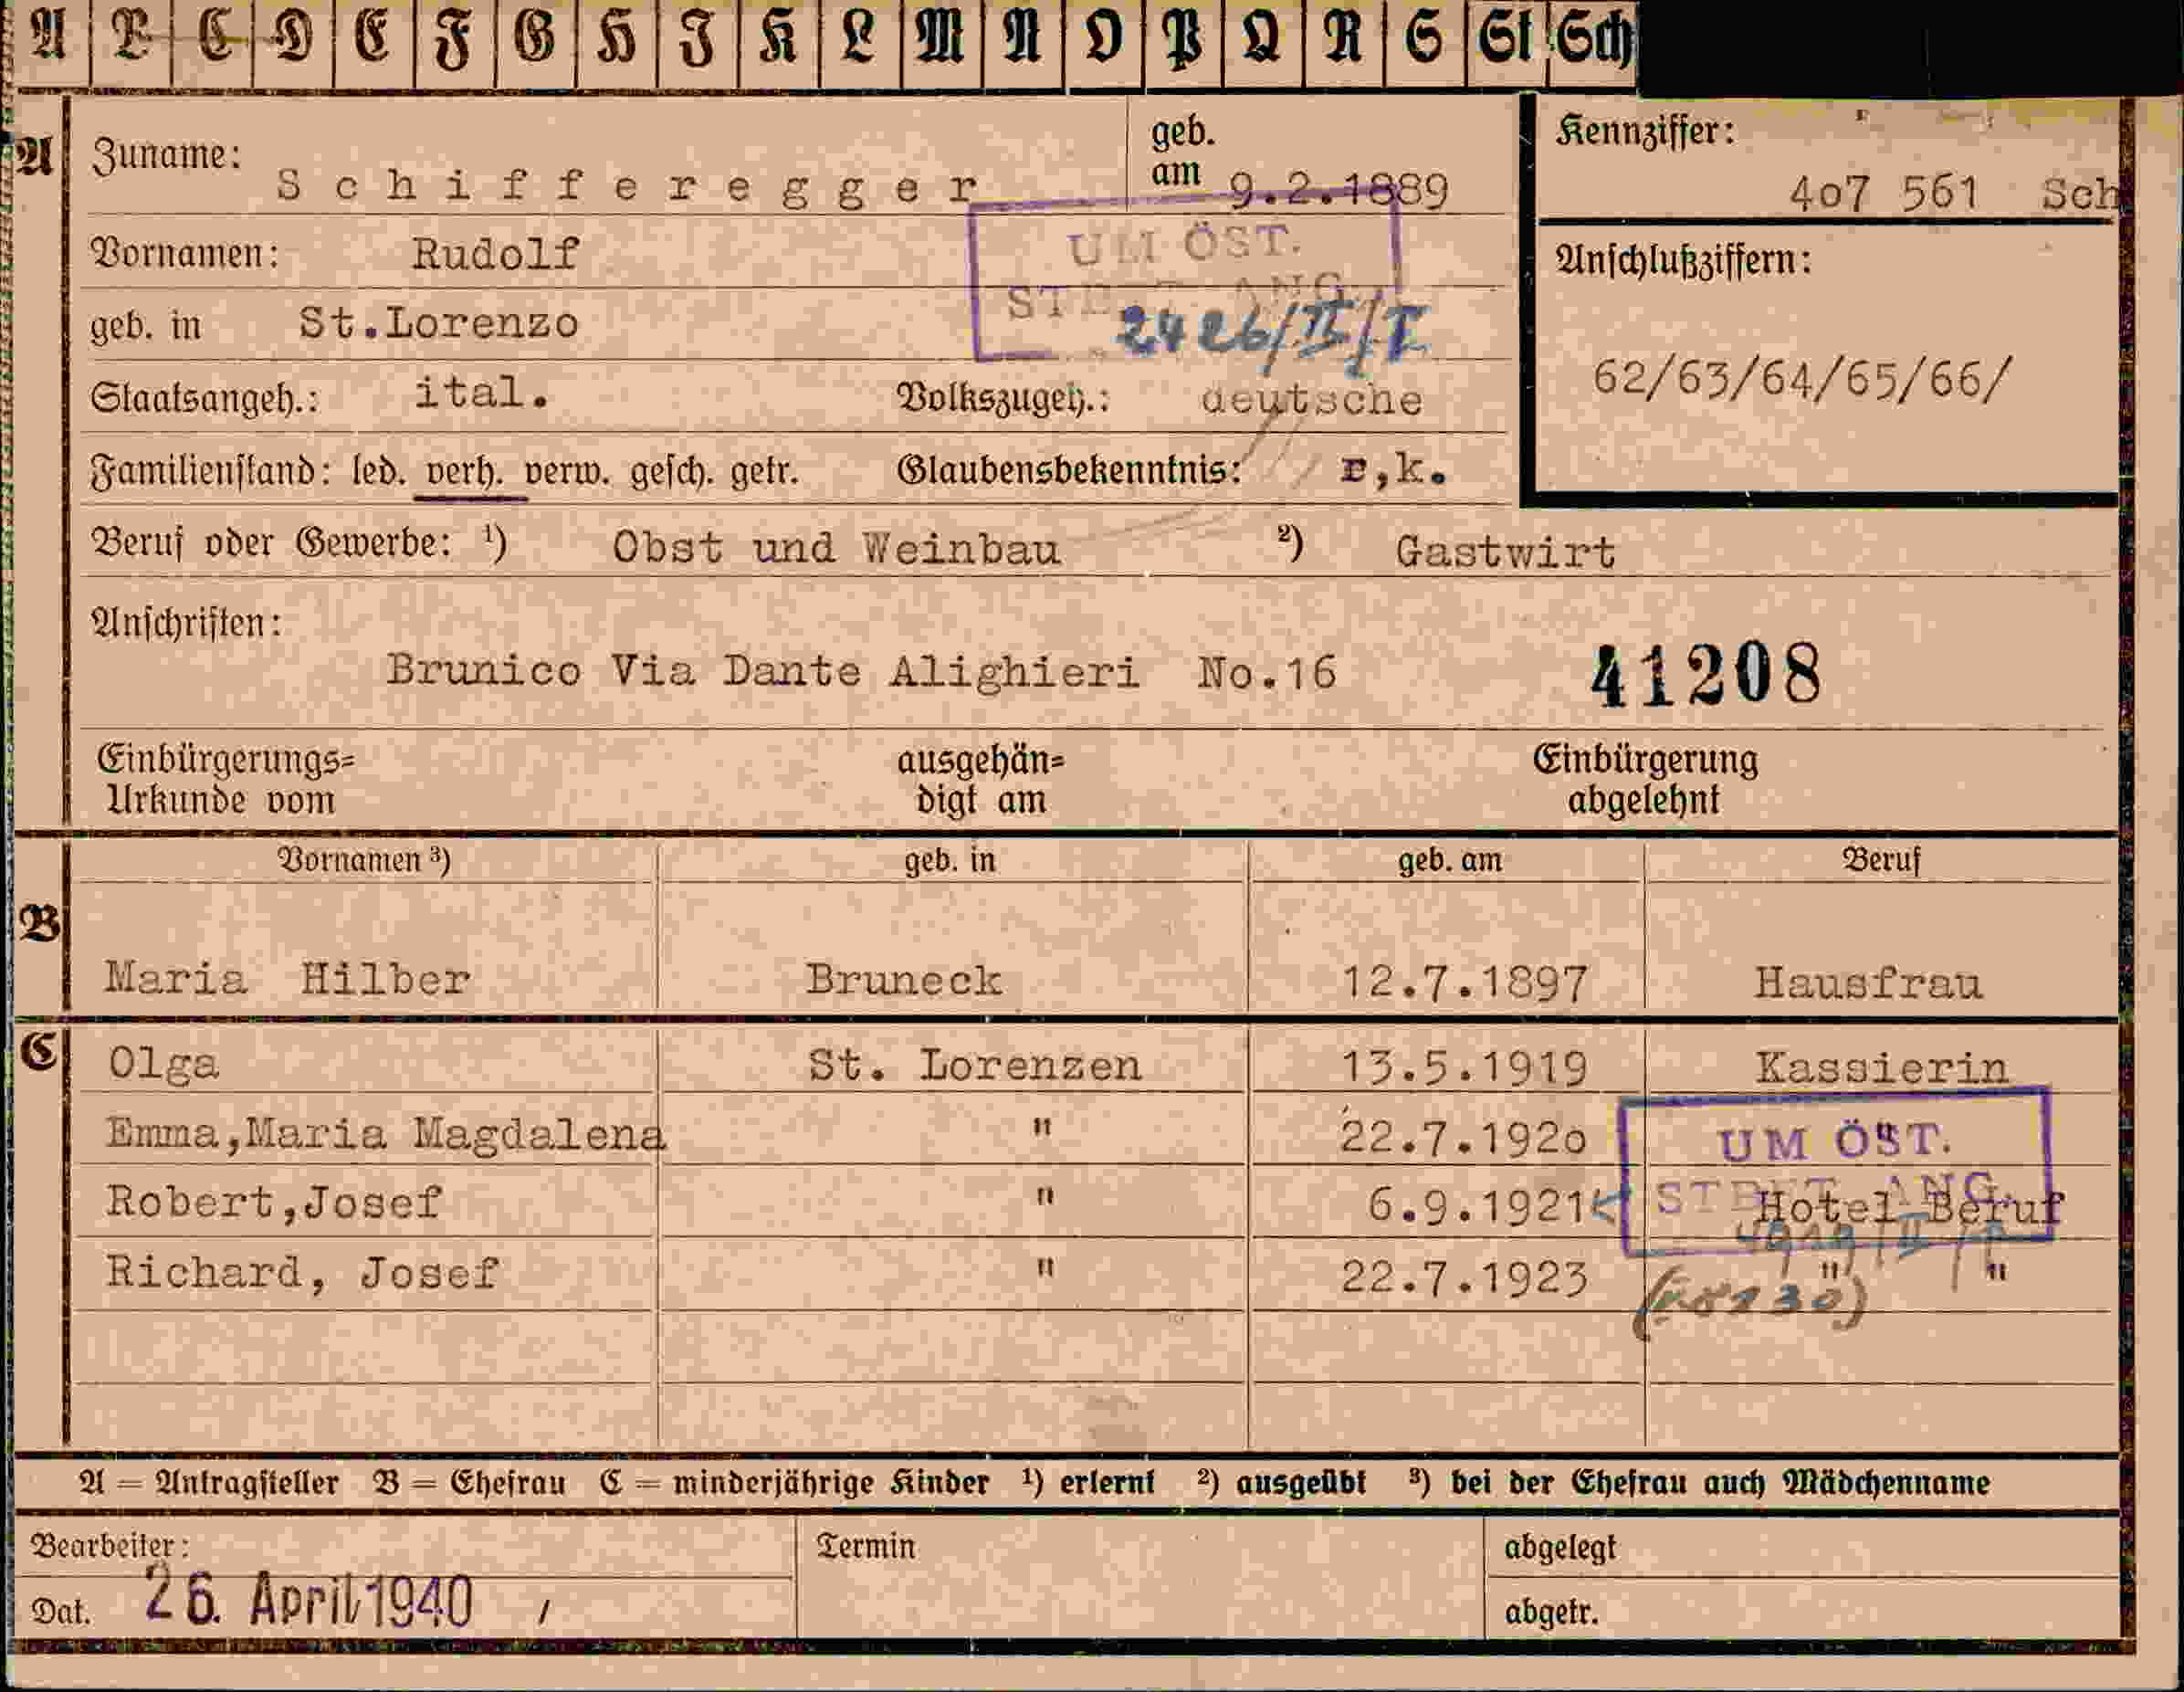 A B C D E F G H I K L M N O P Q R S St Sch
A Zuname: Schifferegger geb. am 9.2.1889 Kennziffer: 4o7 561 Sch
UM ÖST.
Vornamen: Rudolf Anschlußziffern:
geb. in St.Lorenzo 2426/II/I
62/63/64/65/66/
Staatsangeh.: ital. Volkszugeh.: deutsche
Familienstand: led. verh. verw. gesch. getr. Glaubensbekenntnis: r,k.
Beruf oder Gewerbe: ¹) Obst und Weinbau ²) Gastwirt
Anschriften:
Brunico Via Dante Alighieri No.16 41208
Einbürgerungs= ausgehän= Einbürgerung
Urkunde vom digt am abgelehnt
Vornamen ³) geb. in geb. am Beruf
B
Maria Hilber Bruneck 12.7.1897 Hausfrau
C Olga St. Lorenzen 13.5.1919 Kassierin
Emma,Maria Magdalena " 22.7.192o "
UM ÖST.
Robert,Josef " 6.9.1921 Hotel Beruf
Richard, Josef " 22.7.1923 " "
A = Antragsteller B = Ehefrau C = minderjährige Kinder ¹) erlernt ²) ausgeübt ³) bei der Ehefrau auch Mädchenname
Bearbeiter: Termin abgelegt
Dat. 26. April 1940 abgetr.